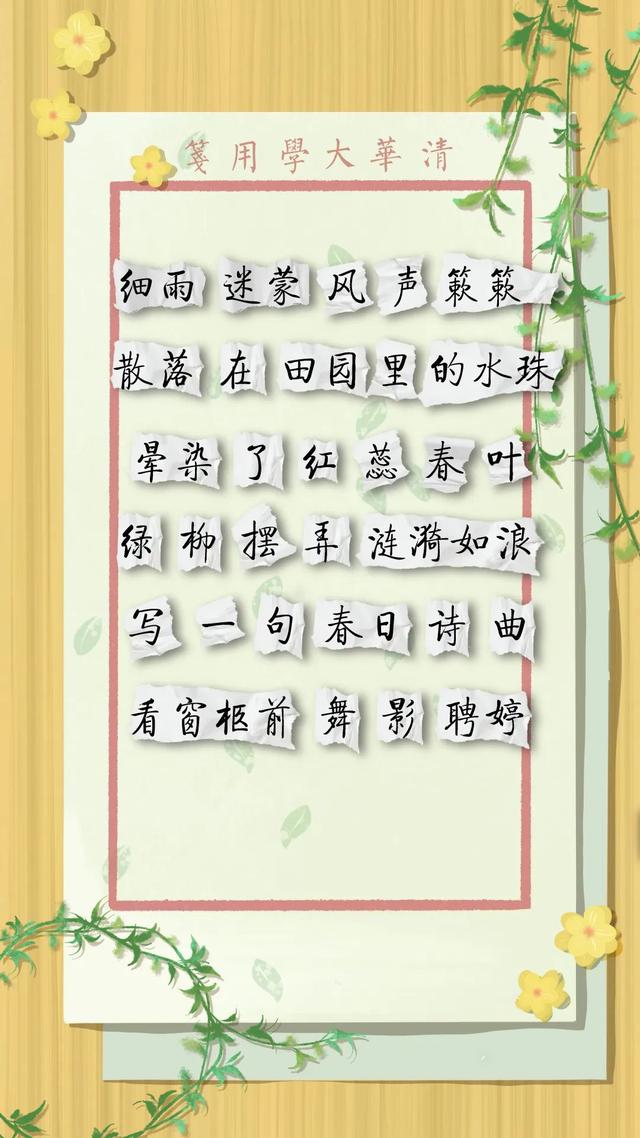 清華大學用箋
细雨迷蒙风声簌簌
散落在田园里的水珠
晕染了红蕊春叶
绿柳摆弄涟漪如浪
写一句春日诗曲
看窗柩前舞影聘婷